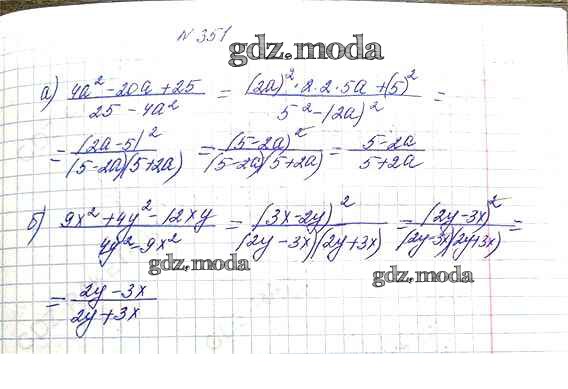 № 351
gdz.moda
а) (4a² - 20a + 25)/(25 - 4a²) = ((2a)² · 2 · 2 · 5a + (5)²)/(5² - (2a)²) =
= (2a - 5)²/((5 - 2a)(5 + 2a)) = (5 - 2a)²/((5 - 2a)(5 + 2a)) = (5 - 2a)/(5 + 2a)
б) (9x² + 4y² - 12xy)/(4y² - 9x²) = (3x - 2y)²/((2y - 3x)(2y + 3x)) = (2y - 3x)²/((2y - 3x)(2y + 3x)) =
gdz.moda
gdz.moda
= (2y - 3x)/(2y + 3x)